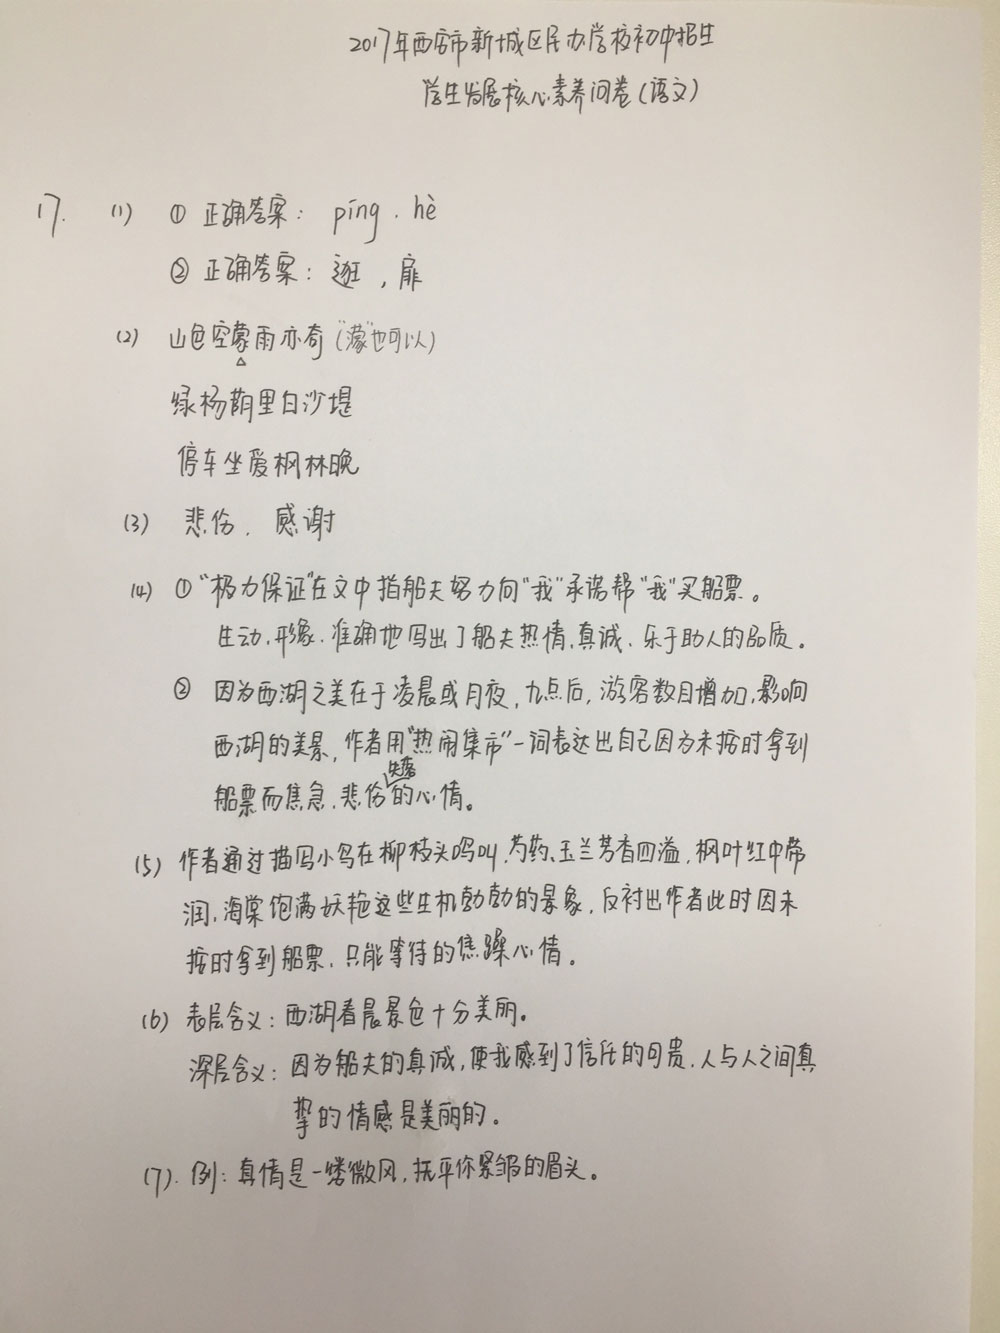 2017年西安市新城区民办学校初中招生
学生发展核心素养问卷(语文)
17. (1) ① 正确答案: píng . hè
② 正确答案: 逛 , 扉
(2) 山色空蒙雨亦奇 ("濛"也可以)
绿杨荫里白沙堤
停车坐爱枫林晚
(3) 悲伤 . 感谢
(4) ①"极力保证"在文中指船夫努力向"我"承诺帮"我"买船票。
生动、形象、准确地写出了船夫热情、真诚、乐于助人的品质。
② 因为西湖之美在于凌晨或月夜,九点后,游客数目增加,影响
西湖的美景,作者用"热闹集市"一词表达出自己因为未按时拿到
失落
船票而焦急、悲伤的心情。
(5) 作者通过描写小鸟在柳枝头鸣叫,芍药、玉兰芳香四溢,枫叶红中带
润,海棠饱满妖艳这些生机勃勃的景象,反衬出作者此时因未
按时拿到船票,只能等待的焦躁心情。
(6) 表层含义:西湖春晨景色十分美丽。
深层含义:因为船夫的真诚,使我感到了信任的可贵,人与人之间真
挚的情感是美丽的。
(7). 例:真情是一缕微风,抚平你紧皱的眉头。